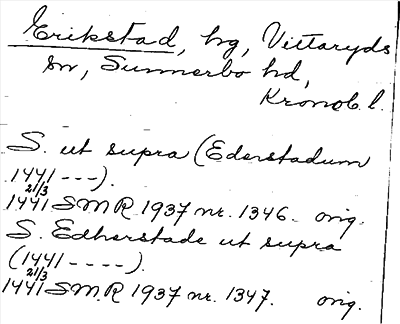 Erikstad, hg, Vittaryds
sn, Sunnerbo hd,
Kronob. l.
S. ut supra (Ederstadum
1441 - - -).
1441 21/3 SMR 1937 nr. 1346. orig.
S. Edherstade ut supra
(1441 - - - -).
1441 21/3 SMR 1937 nr. 1347. orig.